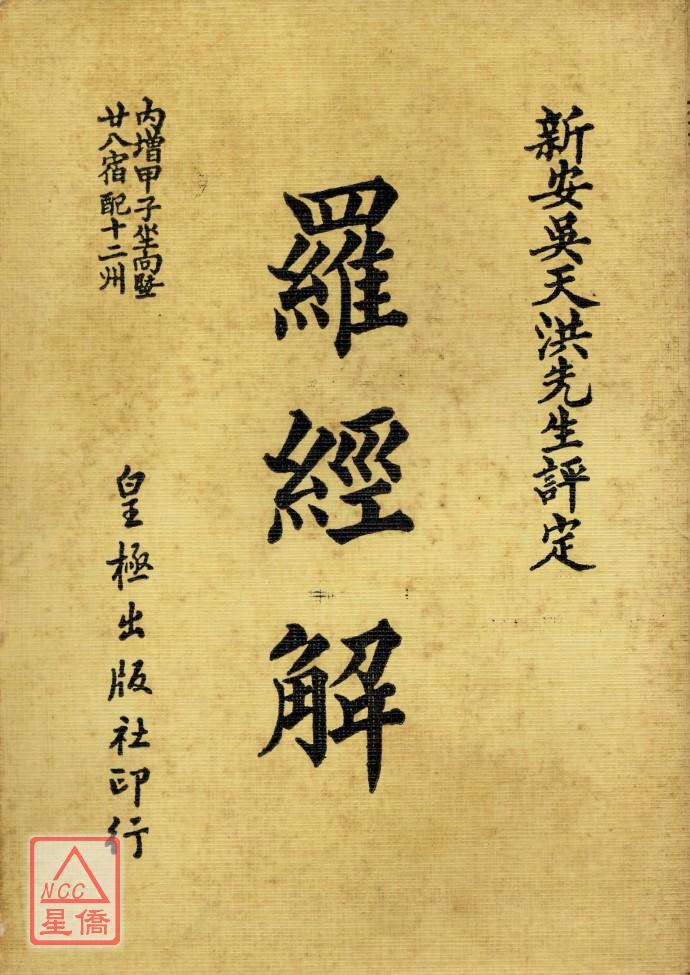 新安吳天洪先生評定
羅經解
內增甲子坐向暨
廿八宿配十二州
皇極出版社印行
NCC
星僑